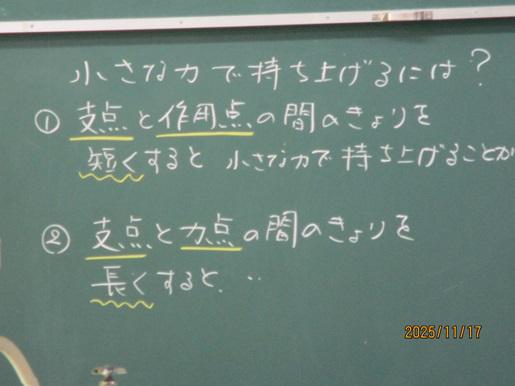 小さな力で持ち上げるには?
① 支点と作用点の間のきょりを
短くすると 小さな力で持ち上げることが
② 支点と力点の間のきょりを
長くすると…
2025/11/17